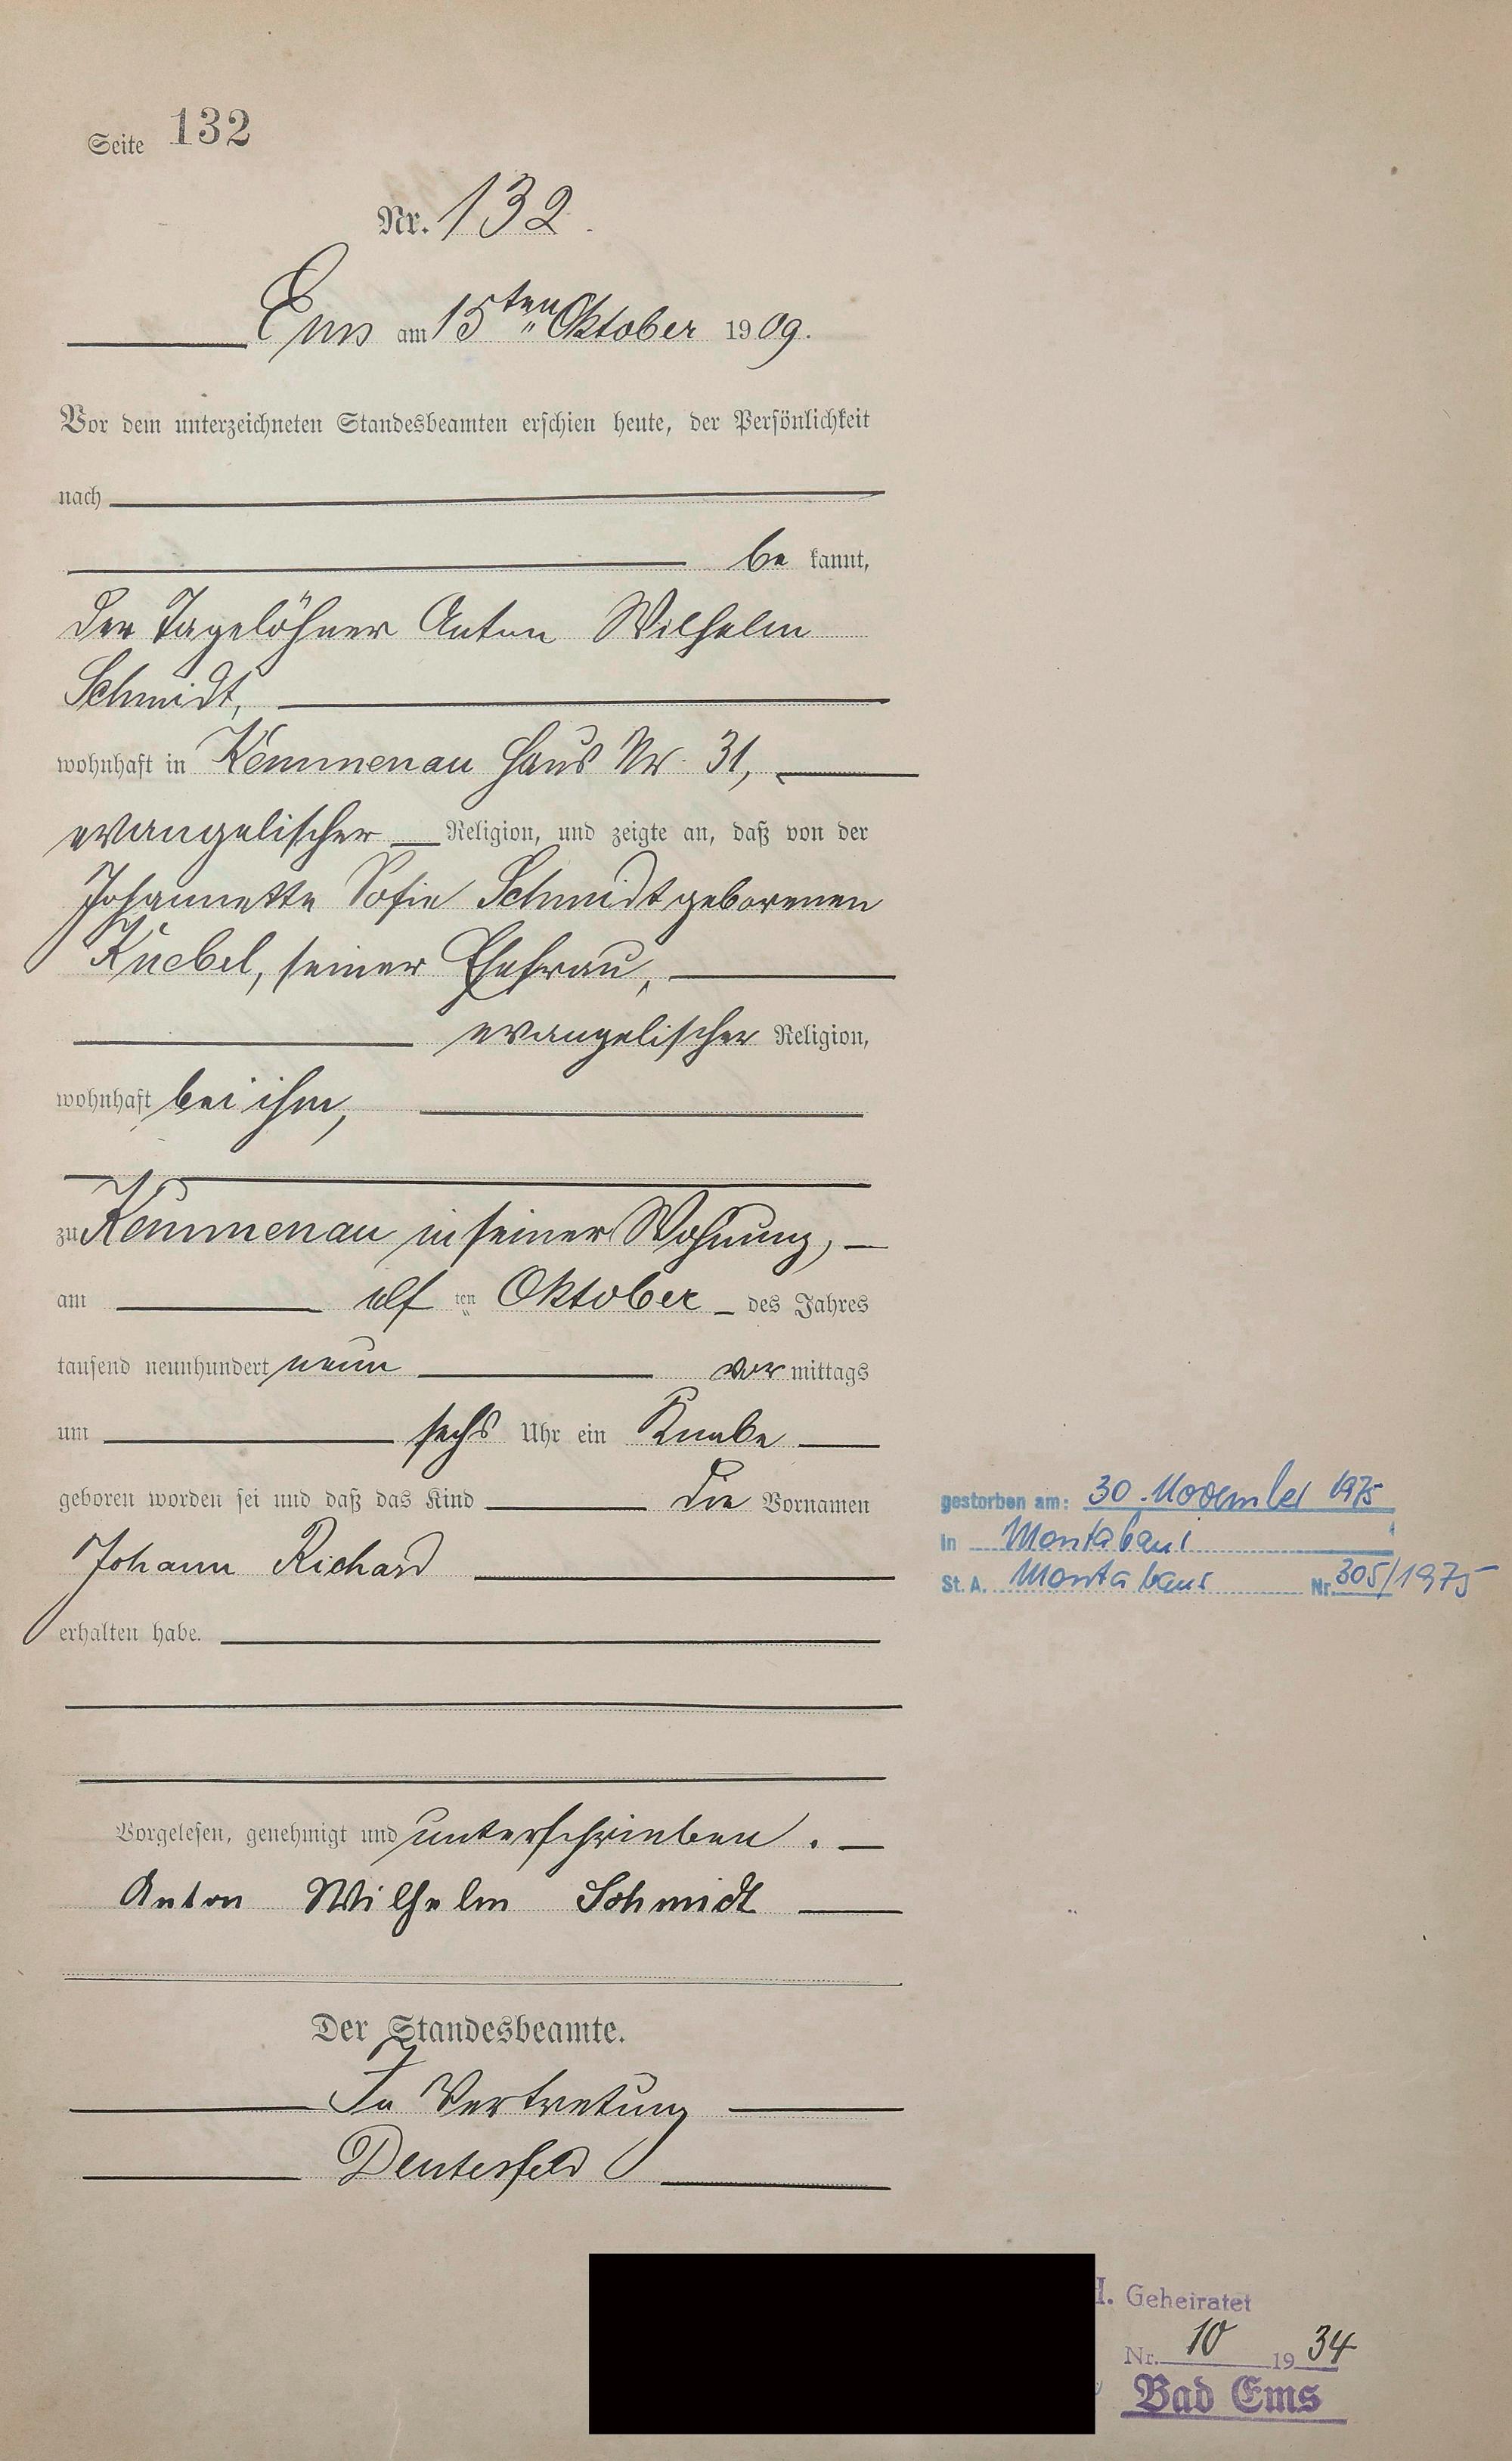 Seite 132
Nr. 132.
Ems am 15ten Oktober 1909.
Vor dem unterzeichneten Standesbeamten erschien heute, der Persönlichkeit
nach
be kannt,
der Tagelöhner Anton Wilhelm
Schmidt,
wohnhaft in Kemmenau Haus Nr. 31,
evangelischer Religion, und zeigte an, daß von der
Johannette Sofie Schmidt geborenen
Knebel, seiner Ehefrau,
evangelischer Religion,
wohnhaft bei ihm,
zu Kemmenau in seiner Wohnung,
am elf ten Oktober des Jahres
tausend neunhundert neun vor mittags
um sechs Uhr ein Knabe
geboren worden sei und daß das Kind die Vornamen
Johann Richard
erhalten habe.
Vorgelesen, genehmigt und unterschrieben.
Anton Wilhelm Schmidt
Der Standesbeamte.
In Vertretung
Deuterfeld
gestorben am: 30. November 1975
in Montabaur
St. A. Montabaur Nr. 305/1975
. Geheiratet
Nr. 10 1934
Bad Ems